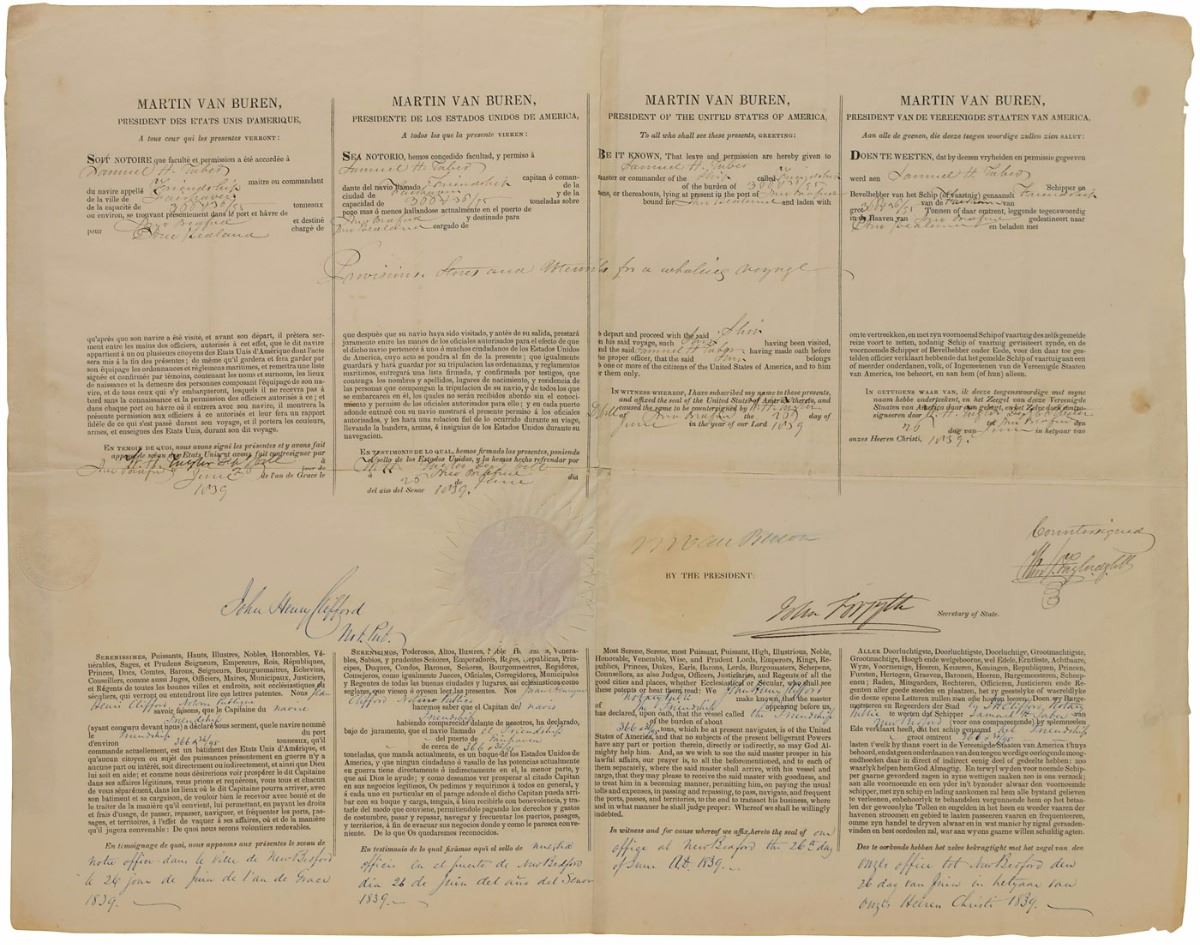 MARTIN VAN BUREN,
PRESIDENT DES ETATS UNIS D'AMERIQUE,
A tous ceux qui les presentes VERRONT:
SOIT NOTOIRE que faculté et permission a été accordée à
Samuel H. Taber
maitre ou commandant
du navire appellé Friendship
de la ville de Fairhaven
de la capacité de 366 & 36/95 tonneaux
ou environ, se trouvant présentement dans le port et hâvre de
New Bedford et destiné
pour New Zealand chargé de
MARTIN VAN BUREN,
PRESIDENTE DE LOS ESTADOS UNIDOS DE AMERICA,
A todos los que la presente VIEREN:
SEA NOTORIO, hemos concedido facultad, y permiso á
Samuel H. Taber
capitan ó coman-
dante del navio llamado Friendship de la
ciudad de Fairhaven y de la
capacidad de 366 & 36/95 toneladas sobre
poco mas ó menos hallandose actualmente en el puerto de
New Bedford y destinado para
New Zealand cargado de
MARTIN VAN BUREN,
PRESIDENT OF THE UNITED STATES OF AMERICA,
To all who shall see these presents, GREETING:
BE IT KNOWN, That leave and permission are hereby given to
Samuel H. Taber
master or commander of the Ship called Friendship
of the burden of 366 & 36/95
tons, or thereabouts, lying at present in the port of New Bedford
bound for New Zealand and laden with
MARTIN VAN BUREN,
PRESIDENT VAN DE VEREENIGDE STAATEN VAN AMERICA,
Aan alle de geenen, die deeze tegenwoordige zullen zien SALUT:
DOEN TE WEETEN, dat by deezen vryheiden en permissie gegeeven
werd aen Samuel H. Taber
Schipper en
Bevelhebber van het Schip (of vaartuig) genaamd Friendship
groot 366 & 36/95 van de Fairhaven van
Tonnen of daar omtrent, leggende tegenswoordig
in de Haaven van New Bedford gedestineert naar
New Zealand en beladen met
Provisions Stores and Utensils for a whaling voyage
qu'après que son navire a été visité, et avant son départ, il prêtera ser-
ment entre les mains des officiers, autorisés à cet effet, que le dit navire
appartient à un ou plusieurs citoyens des Etats Unis d'Amérique dont l'acte
sera mis à la fin des présentes; de même qu'il gardera et fera garder par
son équipage les ordonnances et réglemens maritimes, et remettra une liste
signée et confirmée par témoins, contenant les noms et surnoms, les lieux
de naissance et la demeure des personnes composant l'équipage de son na-
vire, et de tous ceux qui s'y embarqueront, lesquels il ne recevra pas à
bord sans la connaissance et la permission des officiers autorisés à ce; et
dans chaque port ou hâvre où il entrera avec son navire, il montrera la
présente permission aux officiers à ce autorisés et leur fera un rapport
fidèle de ce qui s'est passé durant son voyage, et il portera les couleurs,
armes, et enseignes des Etats Unis, durant son dit voyage.
EN TEMOIN DE QUOI, nous avons signé les présentes et y avons fait
apposer le sceau des Etats Unis d'Amérique et avons fait contresigner par
à
New Bedford le 26 jour de
June de l'an de Grace le
1839
que después que su navio haya sido visitado, y ántes de su salida, prestará
juramento entre las manos de los oficiales autorizados para el efecto de que
el dicho navio pertenece à uno ó muchos ciudadanos de los Estados Unidos
de America, cuyo acto se pondra al fin de la presente; que igualmente
guardará y hará guardar por su tripulacion las ordenanzas, y reglamentos
maritimos, entregará una lista, firmada, y confirmada por testigos, que
contenga los nombres y apellidos, lugares de nacimiento, y residencia de
las personas que compongan la tripulacion de su navio, y de todos los que
se embarcaren en él, los quales no serán recibidos abordo sin el conoci-
miento y permiso de los oficiales autorizados para ello; y en cada puerto
adonde entrare con su navio mostrará el presente permiso á los oficiales
autorizados, y les hara una relacion fiel de lo ocurrido durante su viage,
llevando la bandera, armas, é insignias de los Estados Unidos durante su
navegacion.
EN TESTIMONIO DE LO QUAL, hemos firmado los presentes, poniendo
el sello de los Estados Unidos, y la hemos hecho refrendar por
á New Bedford dia
26 de June
del año del Señor 1839.
to depart and proceed with the said Ship
on his said voyage, such Ship having been visited,
and the said Samuel H. Taber having made oath before
the proper officer, that the said Ship belongs
to one or more of the citizens of the United States of America, and to him
or them only.
IN WITNESS WHEREOF, I have subscribed my name to these presents,
and affixed the seal of the United States of America thereto, and
caused the same to be countersigned by
at New Bedford the 26 day of
June in the year of our Lord 1839
om te vertrekken, en met zyn voornoemd Schip of vaartuig des zelfs gemelde
reize voort te zetten, zodanig Schip of vaartuig gevisiteert zynde, en de
voornoemde Schipper of Bevelhebber onder Eede, voor den daar toe ge-
stelden officier verklaart hebbende dat het gemelde Schip of vaartuig aan een
of meerder onderdanen, volk, of Ingezeenen van de Vereenigde Staaten van
America, te behooren, en aan hem (of hun) alleen.
IN GETUYGENS WAAR VAN, ik deeze tegenswoordige met myne
naam hebbe onderteekent, en het Zeegel van deze Vereenigde
Staaten van America daar aan gehegt, en het Zelve doen contra-
signeeren door
te New Bedford den
26 dag van June in het yaar van
onzes Heeren Christi, 1839.
M Van Buren
BY THE PRESIDENT:
John Forsyth Secretary of State.
Countersigned
John Henry Clifford
Not. Pub.
SERENISSIMES, Puissants, Hauts, Illustres, Nobles, Honorables, Vé-
nérables, Sages, et Prudens Seigneurs, Empereurs, Rois, Républiques,
Princes, Ducs, Comtes, Barons, Seigneurs, Bourguemaitres, Echevins,
Conseillers, comme aussi Juges, Officiers, Maires, Municipaux, Justiciers,
et Régents de toutes les bonnes villes et endroits, soit ecclésiastiques ou
séculiers, qui verront, ou entendront lire ces lettres patentes. Nous Jean
Henri Clifford Notaire Publique
savoir faisons, que le Capitaine du navire
Friendship
(ayant comparu devant nous) a déclaré sous serment, que le navire nommé
Friendship du port
d'environ 366 36/95 tonneaux, qu'il
commande actuellement, est un bâtiment des Etats Unis d'Amérique, et
qu'aucun citoyen ou sujet des puissances présentement en guerre n'y a
aucune part ou intérêt, soit directement ou indirectement, et ainsi que Dieu
lui soit en aide; et comme nous désirerions voir prospérer le dit Capitaine
dans ses affaires légitimes, nous vous prions tous en général, et chacun
de vous séparément, dans les lieux où le dit Capitaine pourra arriver, avec
son bâtiment et sa cargaison, de vouloir bien le recevoir avec bonté et de
le traiter de la manière qu'il convient, lui permettant, en payant les droits
et frais d'usage, de passer, repasser, naviguer, et fréquenter les ports, pas-
sages, et territoires, à l'effet de vaquer à ses affaires, où et de la manière
qu'il jugera convenable: De quoi nous serons volontiers redevables.
En témoignage de quoi, nous apposons aux présentes le sceau de
notre office dans la ville de New Bedford
le 26 jour de Juin de l'an de Grace
1839.
SERENISIMOS, Poderosos, Altos, Ilustres, Nobles, Honorables, Venera-
bles, Sabios, y prudentes Señores, Emperadores, Reyes, Republicas, Prin-
cipes, Duques, Condes, Barones, Señores, Bourgomaestres, Regidores,
Consejeros, como igualmente Jueces, Oficiales, Corregidores, Municipales
y Regentes de todas las buenas ciudades y lugares, asi eclesiasticos como
seglares, que viesen ó oyesen leer las presentes. Nos Juan Henrique
Clifford Notario Publico
hacemos saber que el Capitan del navio
Friendship
habiendo comparecido delante de nosotros, ha declarado,
bajo de juramento, que el navio llamado el Friendship
del puerto de Fairhaven
de cerca de 366 36/95
toneladas, que manda actualmente, es un buque de los Estados Unidos de
America, y que ningun ciudadano ó vasallo de las potencias actualmente
en guerra tiene directamente ó indirectamente en él, la menor parte, y
asi Dios le ayude; y como desseamos ver prosperar al citado Capitan
en sus negocios legitimos, Os pedimos y requirimos á todos en general, y
á cada uno en particular en el parage adonde el dicho Capitan pueda arri-
bar con su buque y carga, tengais, á bien recibirle con benevolencia, y tra-
tarle del modo que conviene, permitiendole pagando los derechos y gastos
de costumbre, pasar y repasar, navegar y frecuentar los puertos, passages,
y territorios, á fin de evacuar sus negocios donde y como le paresca conve-
niente. De lo que Os quedaremos reconocidos.
En testimonio de lo qual firámos aqui el sello de nuestra
officio en el puerto de New Bedford
dia 26 de Juin del año del Senor
1839.
MOST SERENE, Serene, most Puissant, Puissant, High, Illustrious, Noble,
Honorable, Venerable, Wise, and Prudent Lords, Emperors, Kings, Re-
publics, Princes, Dukes, Earls, Barons, Lords, Burgomasters, Schepens,
Counsellors, as also Judges, Officers, Justiciaries, and Regents of all the
good cities and places, whether Ecclesiastical or Secular, who shall see
these patents or hear them read: We John Henry Clifford
Notary Public make known, that the master
of the Friendship appearing before us
has declared, upon oath, that the vessel called the Friendship
of the burden of about
366 36/95 tons, which he at present navigates, is of the United
States of America, and that no subjects of the present belligerent Powers
have any part or portion therein, directly or indirectly, so may God Al-
mighty help him. And, as we wish to see the said master prosper in his
lawful affairs, our prayer is, to all the beforementioned, and to each of
them separately, where the said master shall arrive, with his vessel and
cargo, that they may please to receive the said master with goodness, and
to treat him in a becoming manner, permitting him, on paying the usual
tolls and expenses, in passing and repassing, to pass, navigate, and frequent
the ports, passes, and territories, to the end to transact his business, where
and in what manner he shall judge proper: Whereof we shall be willingly
indebted.
In witness and for cause whereof we affix hereto the seal of our
office at New Bedford the 26th day
of June A.D. 1839.
ALLER Doorluchtigste, Doorluchtigste, Doorluchtige, Grootmachtigste,
Grootmachtige, Hoogh ende welgeboorne, wel Edele, Erntfeste, Achtbaare,
Wyze, Voorsienige, Heeren, Keizeren, Koningen, Republiquen, Princen,
Fursten, Hertogen, Graeven, Baronen, Heeren, Burgemeesteren, Schee-
penen; Raden, Mitsgaders, Rechteren, Officieren, Justicieren ende Re-
genten aller goede steeden en plaatsen, het zy geestelyke of waereldlyke
die deeze opene Letteren zullen zien ofte hooren leezen: Doen wy Burge-
meesteren en Regeerders der Stad by J. H. Clifford, Notary
Public te weeten dat Schipper Samuel H. Taber van
New Bedford (voor ons compareerende) by solemneelen
Eede verklaart heeft, dat het schip genaamt het Friendship
groot omtrent 366 36/95
lasten t'welk hy thans voert in de Vereenigde Staaten van America t'huys
behoordt, endat geen onderdaanen van de teegenswoordige oorlogende moog-
endheeden daar in direct of indirect eenig deel of gedeelte hebben: zoo
waarlyk helpen hem God Almagtig. En terwyl wy den voornoemde Schip-
per gaarne gevorderd zagen in zyne wettigen zaaken zoo is ons verzoek;
aan alle voornoemde en een yder in't byzonder alwaar den voornoemde
schipper, met zyn schip en lading aankomen zal hem alle bystand gelieven
te verleenen, enbehoorlyk te behandelen vergunnende hem op het betaa-
len der gewoonlyke Tollen en ongelden in het heen en weeder vaaren der
havenen stroomen en gebied te laaten passeeren vaaren en frequenteeren,
omme zyn handel te dryven alwaar en in wat manier by zigzal geraadsen-
vinden en best oordeelen zal, war aan wy ons gaarne willen schuldig agten.
Des te oorkonde hebben het zelve bekragtight met het zegel van den
onzes office tot New Bedford den
26 dag van Juin in het yaar van
onzes Heeren Christi 1839.